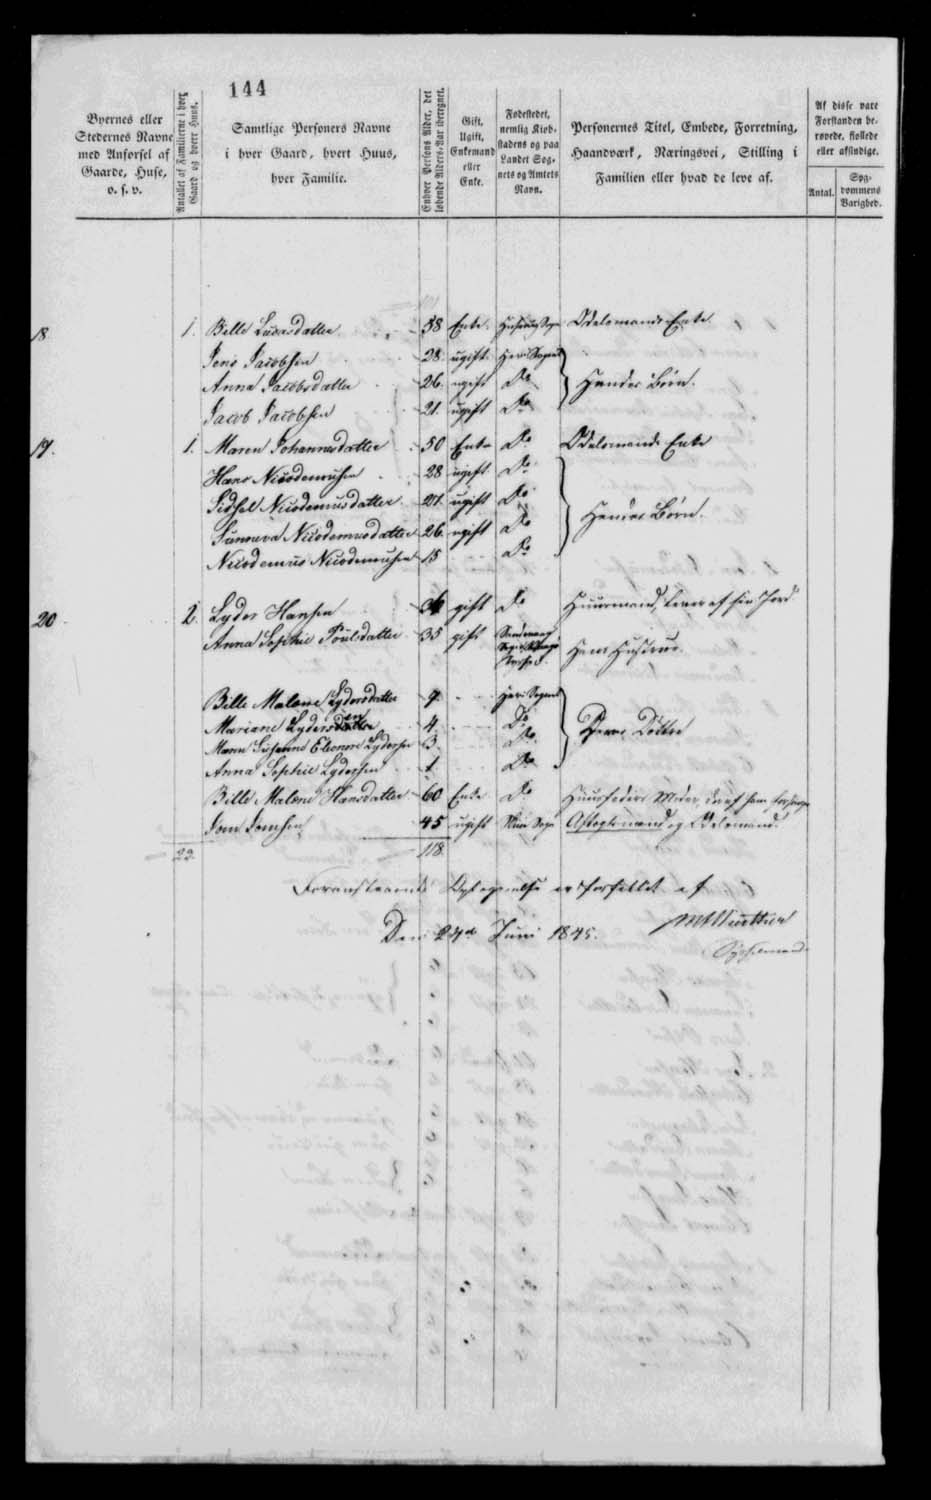 144
Byernes eller Stedernes Navne med Anførsel af Gaarde, Huse, o. s. v.
Antallet af Familierne i hver Gaard og hvert Huus.
Samtlige Personers Navne i hver Gaard, hvert Huus, hver Familie.
Enhver Persons Alder, det løbende Alders-Aar iberegnet.
Gift, Ugift, Enkemand eller Enke.
Fødestedet, nemlig Kiøbstadens og paa Landet Sognets og Amtets Navn.
Personernes Titel, Embede, Forretning, Haandværk, Næringsvei, Stilling i Familien eller hvad de leve af.
Af disse vare Forstanden berøvede, fiollede eller afsindige.
Antal.
Sygdommens Varighed.
18 1. Bille 58 Enke Odelsmands Enke
Jens Jacobsen 28 ugift Her i Sognet
Anna Jacobsdatter 26 ugift Do Hendes Børn.
Jacob Jacobsen 21 ugift Do
19. 1. Maren Johannesdatter 50 Enke Do Odelsmands Enke
Hans Nicodemusen 28 ugift Do
Sidsel Nicodemusdatter 27 ugift Do Hendes Børn.
Sunneva Nicodemusdatter 26 ugift Do
Nicodemus Nicodemusen 15 Do
20 2. Lyder Hansen 36 gift Do Huusmand, lever af sin Jord
Anna Sophie Poulsdatter 35 gift Hans Hustrue.
Bille Malene Lydersdatter 7 Her i Sognet
Mariane Lydersen 4 Do Deres Døttre
Maren Susanne Eleonore Lydersen 3 Do
Anna Sophie Lydersen 1 Do
Bille Malene Hansdatter 60 Enke Do Huusfaders Moder, der af ham forsørges
Joen Joensen 45 ugift Sogn Aftægtsmand og Odelsmand.
23. 118.
Foranstaaende Optegnelse er forfattet af
Den 24de Juni 1845.
Sysselmand